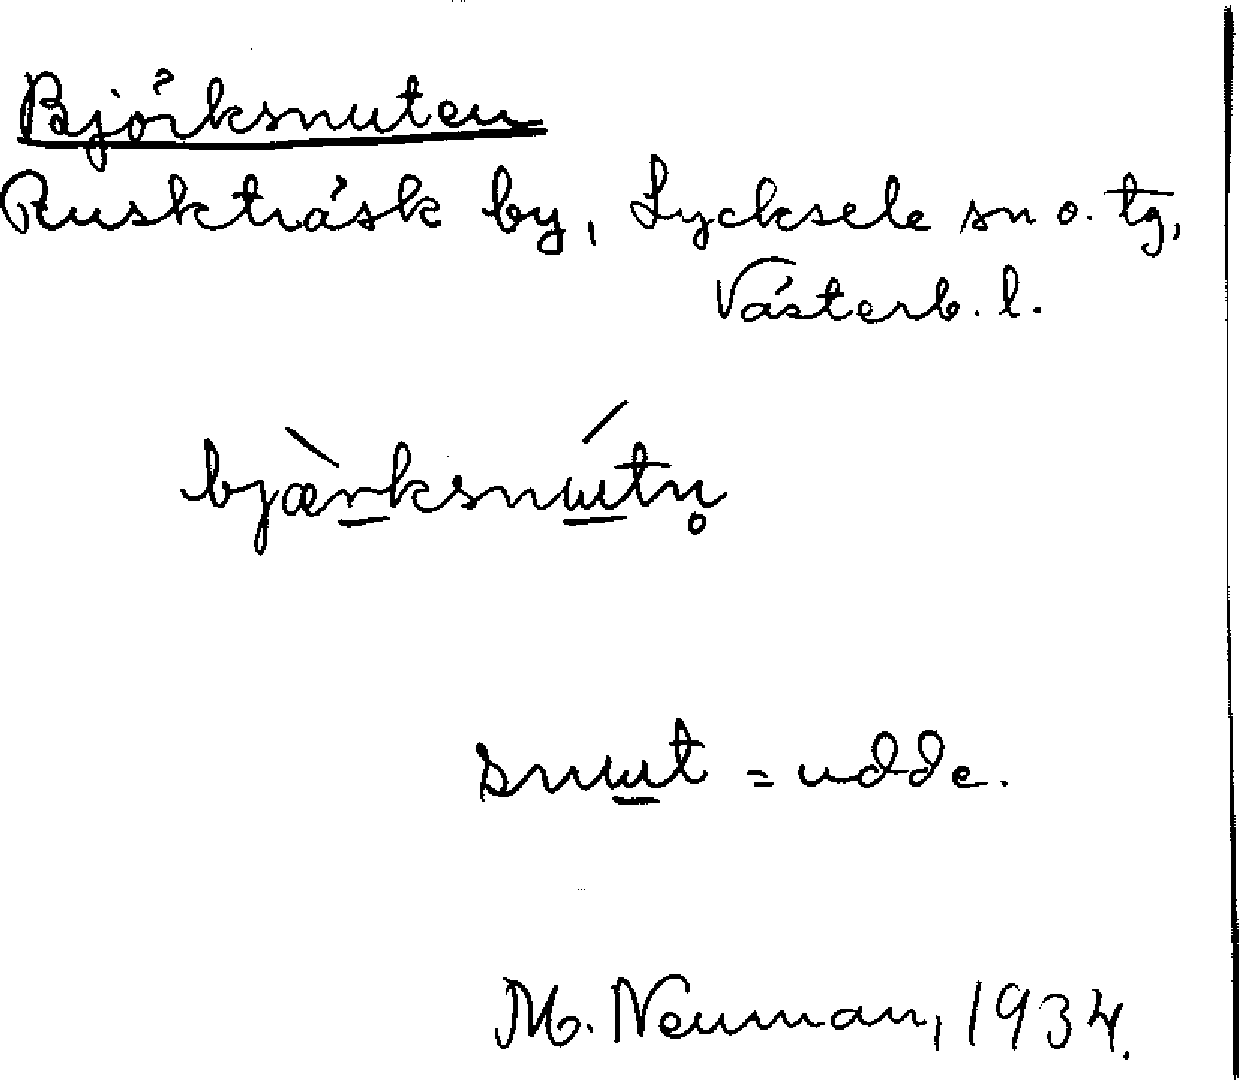 Björksnuten
Ruskträsk by, Lycksele sn o. tg,
Västerb. l.
bjæ̀rksnɯ́tn̥
snɯt = udde.
M. Neuman, 1934.